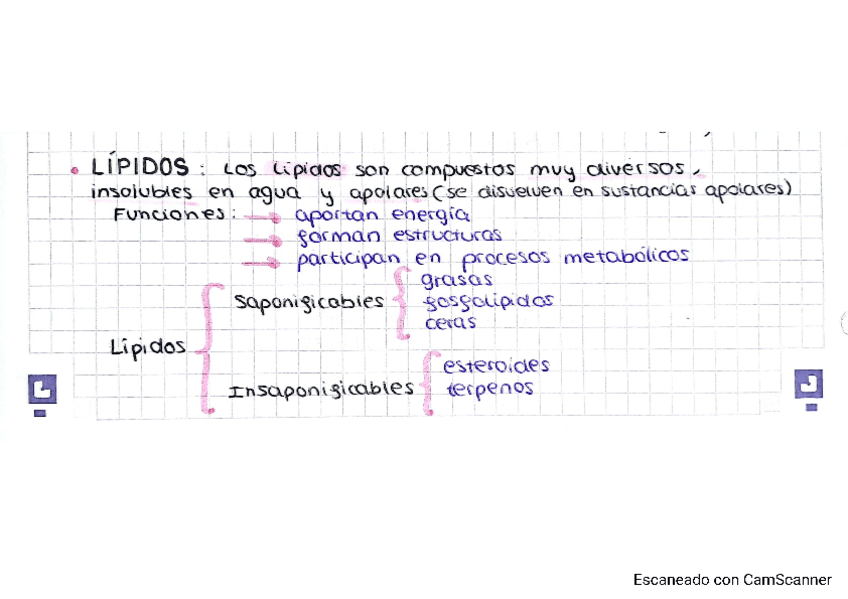 • LÍPIDOS: Los lípidos son compuestos muy diversos,
insolubles en agua y apolares (se disuelven en sustancias apolares)
Funciones: → aportan energía
→ forman estructuras
→ participan en procesos metabólicos
grasas
Saponificables { fosfolípidos
ceras
Lípidos {
esteroides
Insaponificables { terpenos
Escaneado con CamScanner